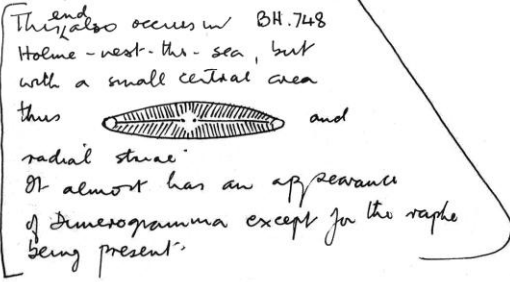 This end also occurs in BH.748
Holme-next-the-sea, but
with a small central area
thus and
radial striae.
It almost has an appearance
of Dimerogramma except for the raphe
being present.